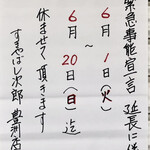 緊急事態宣言 延長に
6月1日(火)
～
6月20日(日)迄
休ませて頂きます
すきやばし次郎 豊洲店